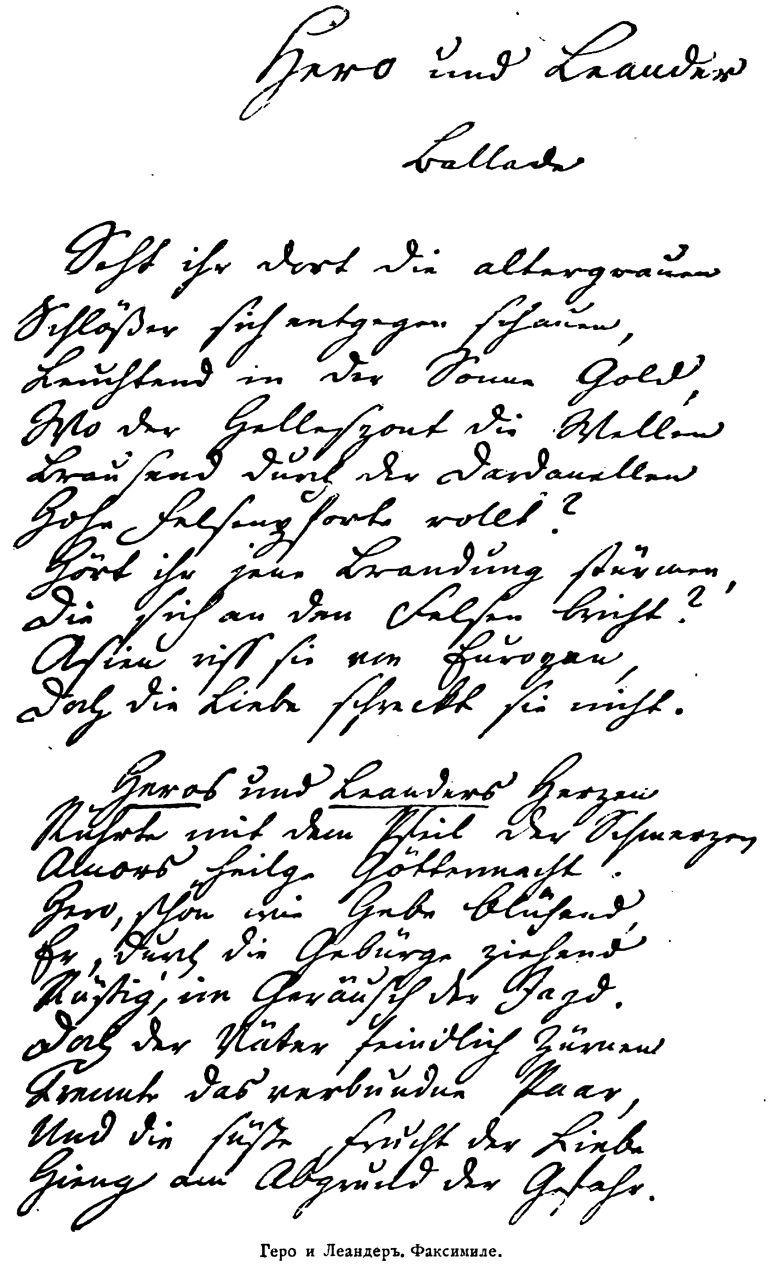 Hero und Leander
Ballade
Seht ihr dort die altergrauen
Schlößer sich entgegen schauen,
Leuchtend in der Sonne Gold,
Wo der Hellespont die Wellen
Brausend durch der Dardanellen
Hohe Felsenpforte rollt?
Hört ihr jene Brandung stürmen,
Die sich an den Felsen bricht?
Asien riss sie von Europen,
Doch die Liebe schreckt sie nicht.
Heros und Leanders Herzen
Rührte mit dem Pfeil der Schmerzen
Amors heilge Göttermacht.
Hero, schön wie Hebe blühend,
Er, durch die Gebürge ziehend
Rüstig, im Geräusch der Jagd.
Doch der Väter feindlich Zürnen
Trennte das verbundne Paar,
Und die süße Frucht der Liebe
Hieng am Abgrund der Gefahr.
Геро и Леандеръ. Факсимиле.